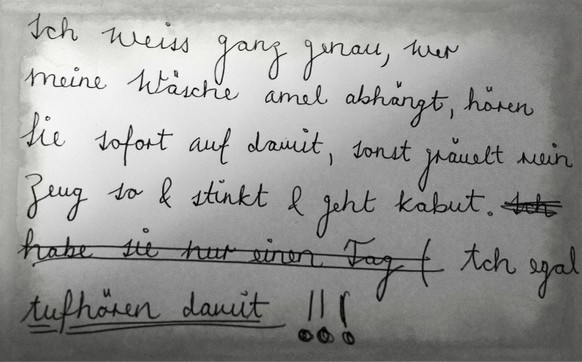 Ich weiss ganz genau, wer
meine Wäsche amel abhängt, hören
Sie sofort auf damit, sonst gräuelt mein
Zeug so & stinkt & geht kabut. Ich
habe sie nur einen Tag ( Ich egal
tufhören damit !!!